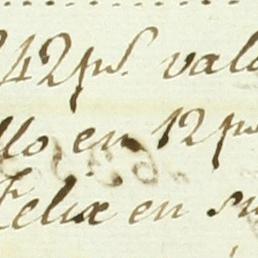 242 p.s valo
llo en 12 p.s
Felix en su